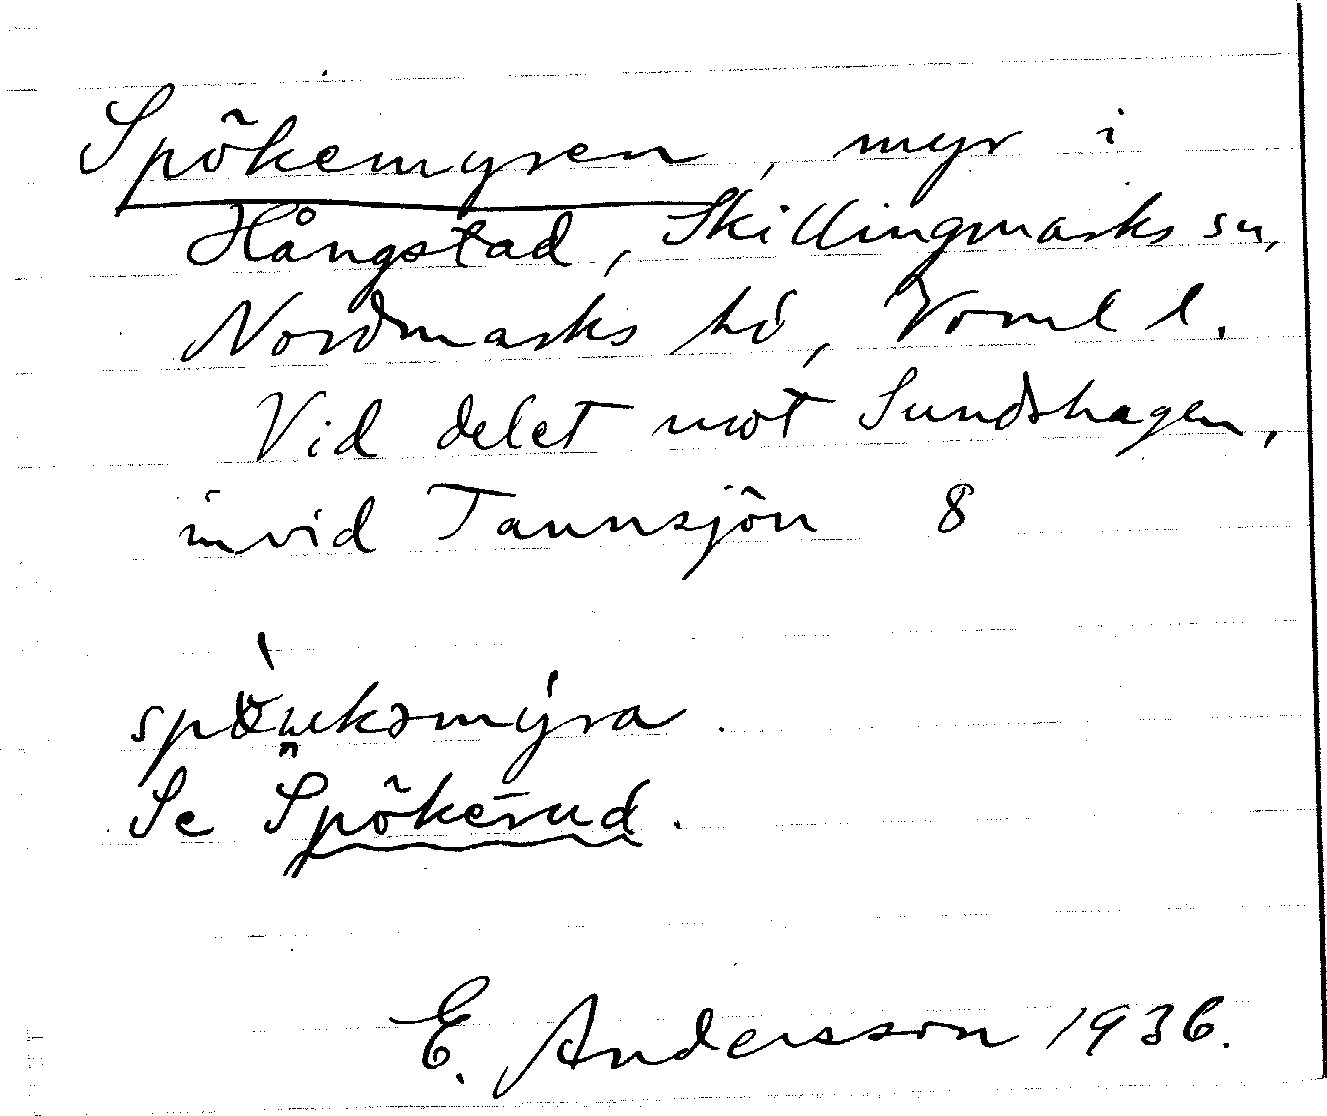 Spökemyren, myr i
Hångstad, Skillingmarks sn,
Nordmarks hd, Vörml l.
Vid delet mot Sundshagen,
invid Tannsjön 8
Se Spökerud.
E. Andersson 1936.